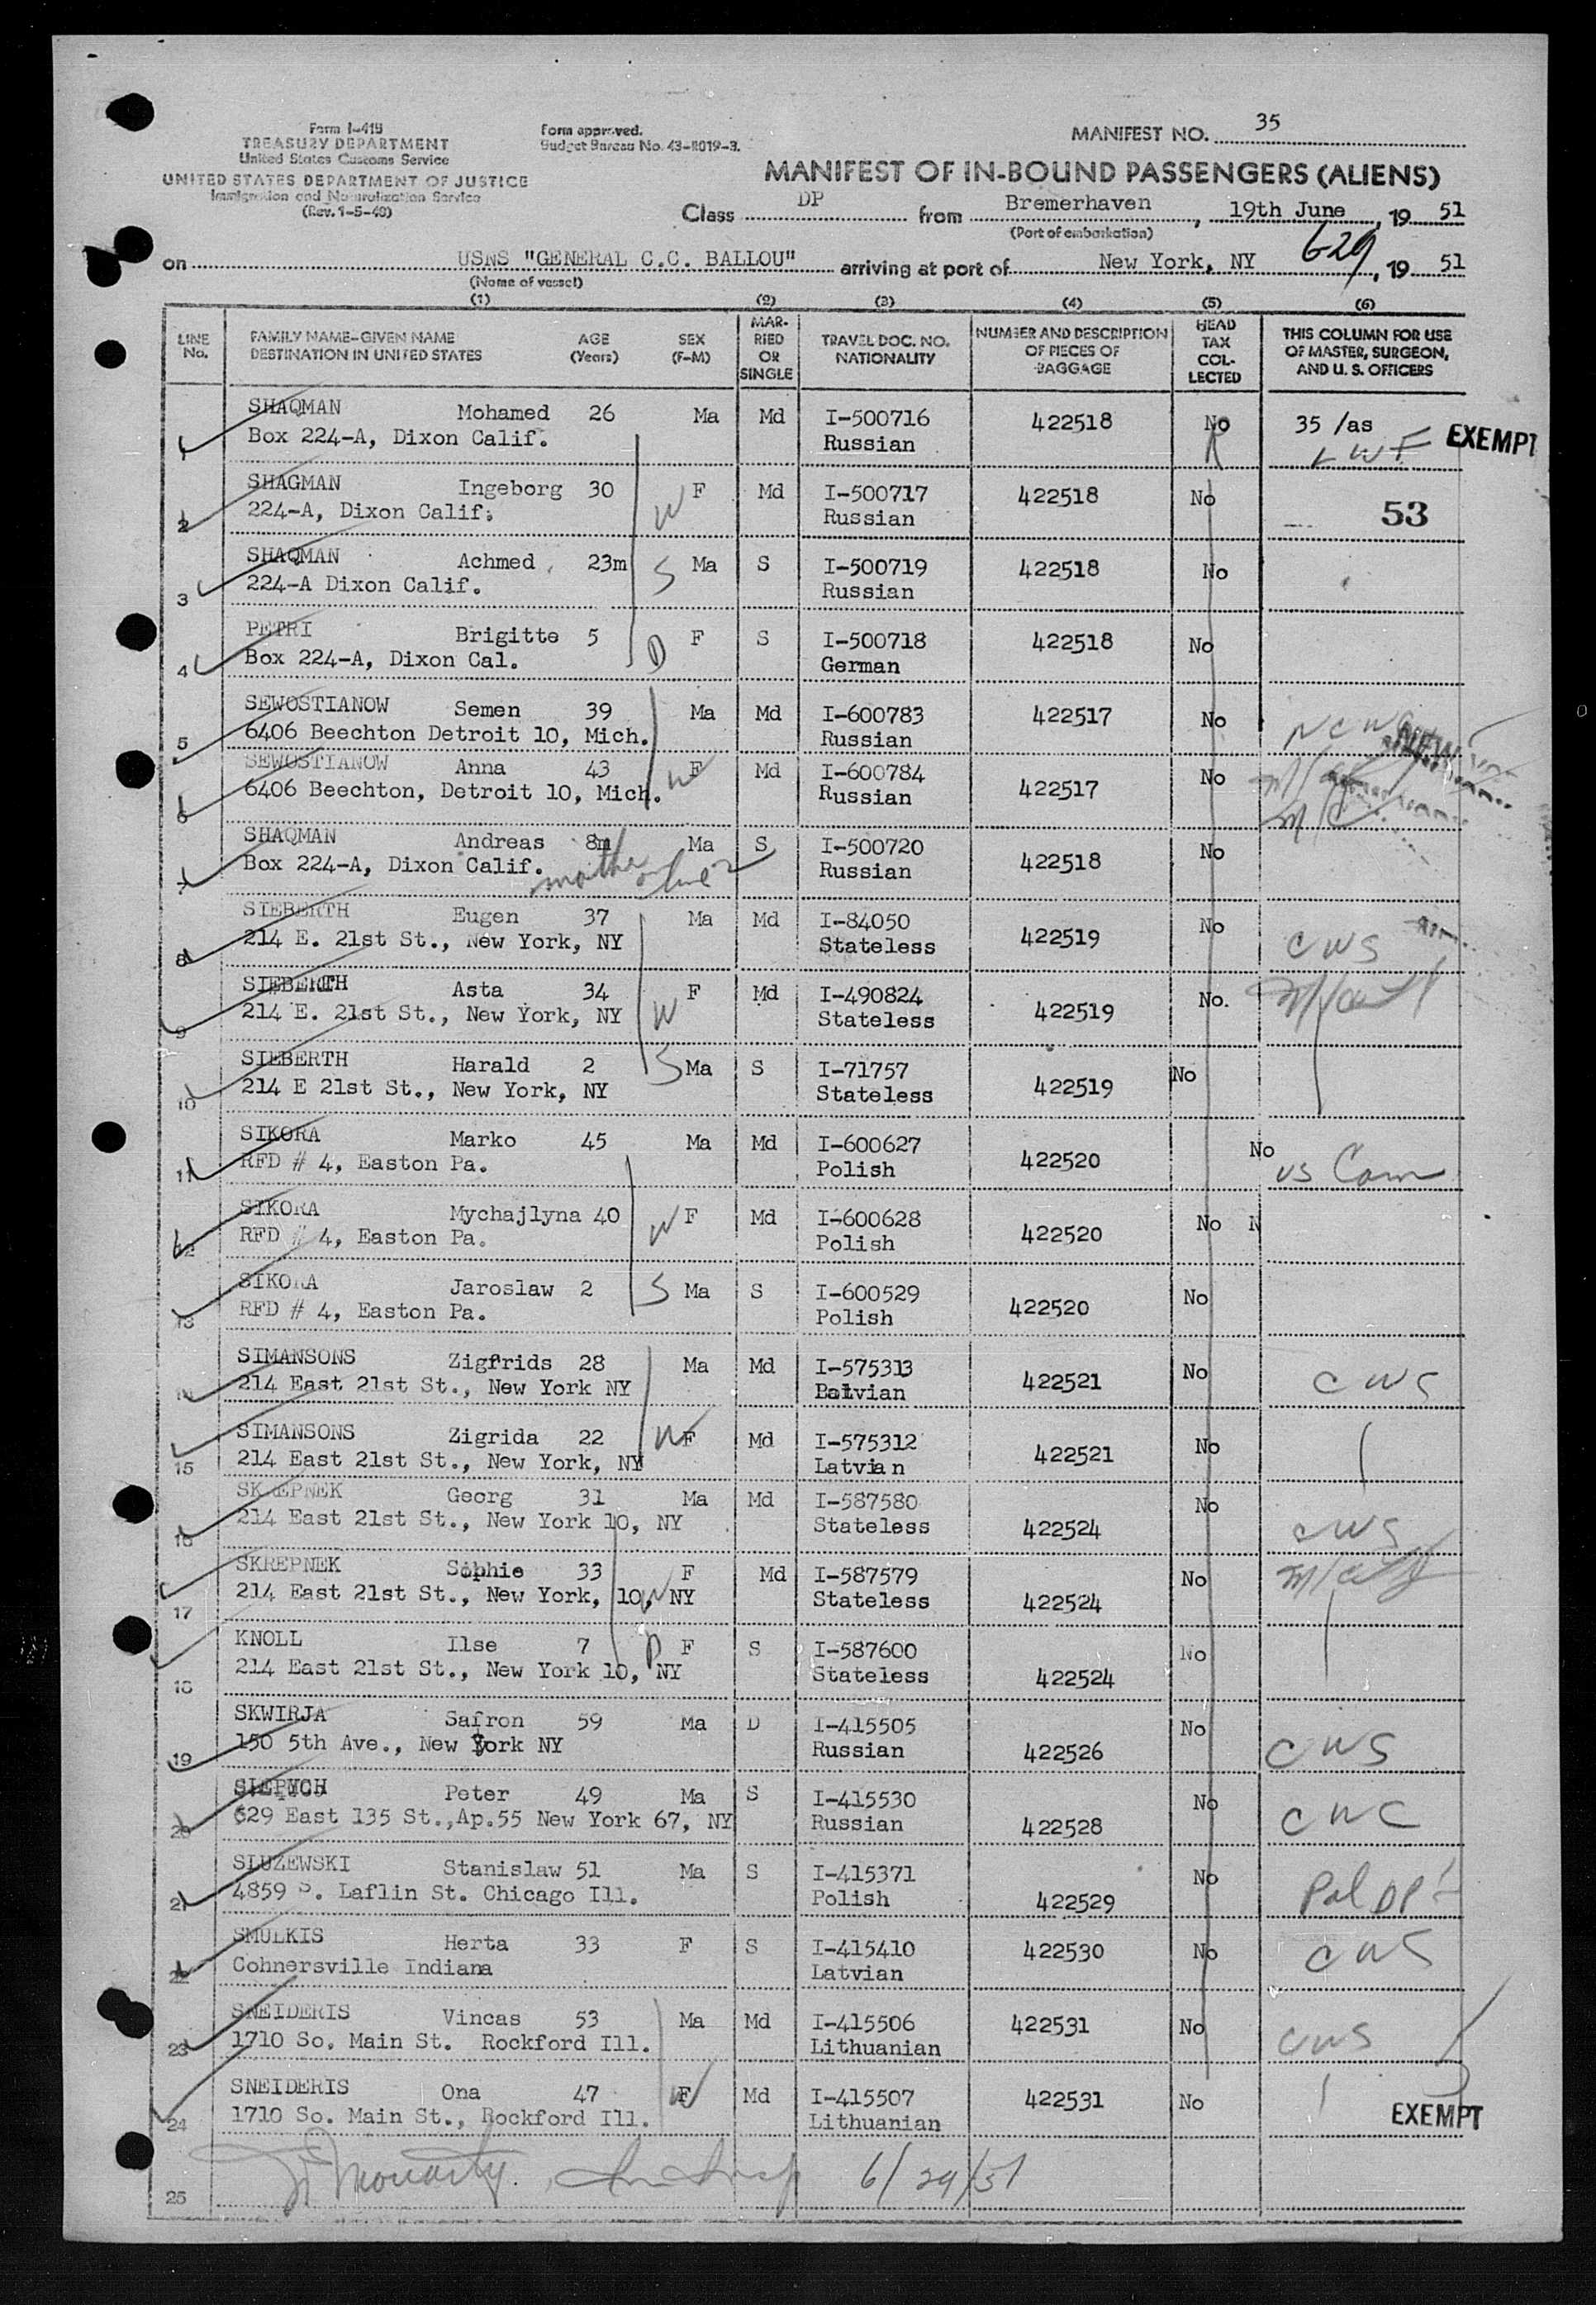 Form I-418
TREASURY DEPARTMENT
United States Customs Service
UNITED STATES DEPARTMENT OF JUSTICE
Immigration and Naturalization Service
(Rev. 1-5-49)
Form approved.
Budget Bureau No. 43-R019-3.
MANIFEST NO. 35
MANIFEST OF IN-BOUND PASSENGERS (ALIENS)
Class DP from Bremerhaven, 19th June, 19 51
(Port of embarkation)
on USNS "GENERAL C.C. BALLOU" arriving at port of New York, NY 629, 19 51
(Name of vessel)
(1) (2) (3) (4) (5) (6)
LINE No. FAMILY NAME-GIVEN NAME DESTINATION IN UNITED STATES AGE (Years) SEX (F-M) MARRIED OR SINGLE TRAVEL DOC. NO. NATIONALITY NUMBER AND DESCRIPTION OF PIECES OF BAGGAGE HEAD TAX COLLECTED THIS COLUMN FOR USE OF MASTER, SURGEON, AND U. S. OFFICERS
1 SHAQMAN Mohamed 26 Ma Md I-500716 422518 No 35 /as EXEMPT
Box 224-A, Dixon Calif. Russian LWF
2 SHAGMAN Ingeborg 30 W F Md I-500717 422518 No 53
224-A, Dixon Calif. Russian
3 SHAQMAN Achmed 23m S Ma S I-500719 422518 No
224-A Dixon Calif. Russian
4 PETRI Brigitte 5 D F S I-500718 422518 No
Box 224-A, Dixon Cal. German
5 SEWOSTIANOW Semen 39 Ma Md I-600783 422517 No NCWC
6406 Beechton Detroit 10, Mich. Russian
6 SEWOSTIANOW Anna 43 W F Md I-600784 422517 No
6406 Beechton, Detroit 10, Mich. Russian
7 SHAQMAN Andreas 8m Ma S I-500720 422518 No
Box 224-A, Dixon Calif. mother on line 2 Russian
8 SIEBERTH Eugen 37 Ma Md I-84050 422519 No CWS
214 E. 21st St., New York, NY Stateless
9 SIEBERTH Asta 34 W F Md I-490824 422519 No.
214 E. 21st St., New York, NY Stateless
10 SIEBERTH Harald 2 S Ma S I-71757 422519 No
214 E 21st St., New York, NY Stateless
11 SIKORA Marko 45 Ma Md I-600627 422520 No
RFD # 4, Easton Pa. Polish US Com
12 SIKORA Mychajlyna 40 W F Md I-600628 422520 No N
RFD # 4, Easton Pa. Polish
13 SIKORA Jaroslaw 2 S Ma S I-600529 422520 No
RFD # 4, Easton Pa. Polish
14 SIMANSONS Zigfrids 28 Ma Md I-575313 422521 No CWS
214 East 21st St., New York NY Latvian
15 SIMANSONS Zigrida 22 W F Md I-575312 422521 No
214 East 21st St., New York, NY Latvian
16 SKREPNEK Georg 31 Ma Md I-587580 422524 No CWS
214 East 21st St., New York 10, NY Stateless
17 SKREPNEK Sophie 33 W F Md I-587579 422524 No
214 East 21st St., New York, 10, NY Stateless
18 KNOLL Ilse 7 D F S I-587600 422524 No
214 East 21st St., New York 10, NY Stateless
19 SKWIRJA Safron 59 Ma D I-415505 422526 No CWS
150 5th Ave., New York NY Russian
20 Peter 49 Ma S I-415530 422528 No CWC
629 East 135 St.,Ap.55 New York 67, NY Russian
21 SLUZEWSKI Stanislaw 51 Ma S I-415371 422529 No Pol DP
4859 P. Laflin St. Chicago Ill. Polish
22 SMULKIS Herta 33 F S I-415410 422530 No CWS
Cohnersville Indiana Latvian
23 SNEIDERIS Vincas 53 Ma Md I-415506 422531 No CWS
1710 So. Main St. Rockford Ill. Lithuanian
24 SNEIDERIS Ona 47 W F Md I-415507 422531 No EXEMPT
1710 So. Main St., Rockford Ill. Lithuanian
25 Moriarty. 6/29/51